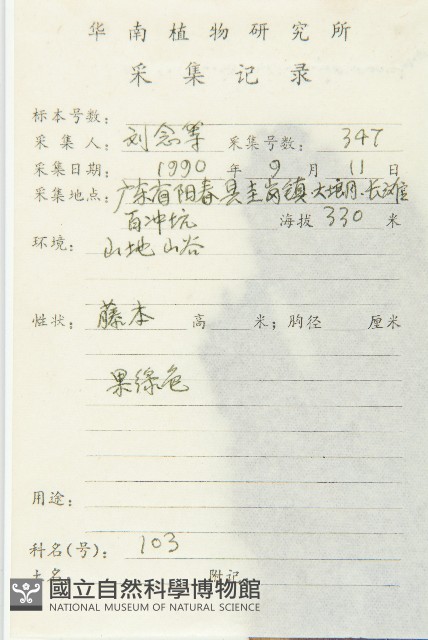 华南植物研究所
采集记录
标本号数:
采集人: 刘念等 采集号数: 347
采集日期: 1990 年 9 月 11 日
采集地点: 广东省阳春县圭岗镇大垠月.长滩
百冲坑 海拔 330 米
环境: 山地山谷
性状: 藤本 高 米; 胸径 厘米
果绿色
用途:
科名(号): 103
土名: 附记
國立自然科學博物館
NATIONAL MUSEUM OF NATURAL SCIENCE